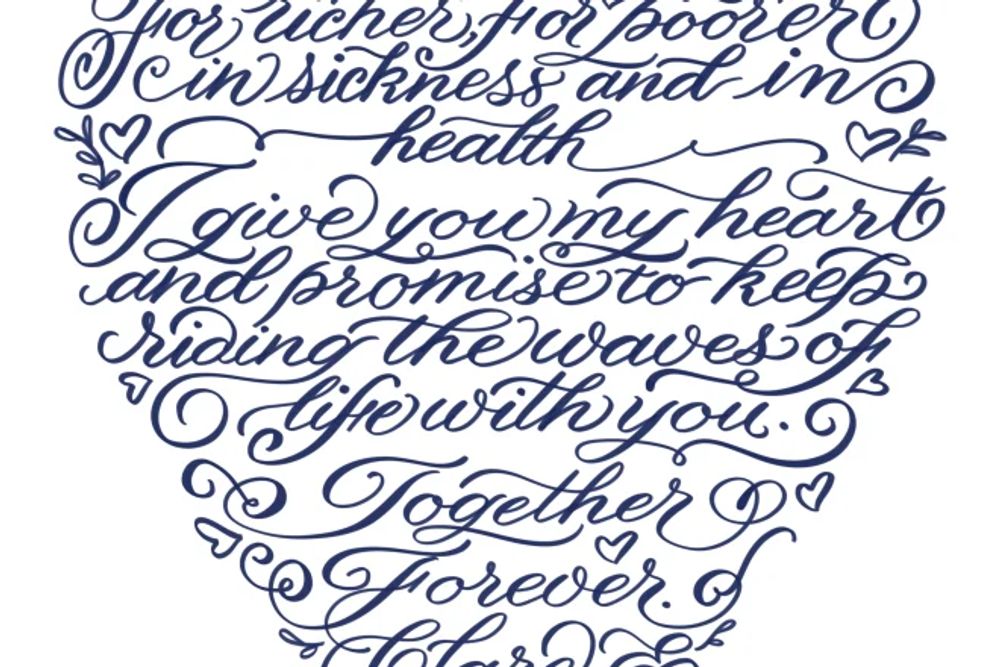 For richer, for poorer
in sickness and in
health
I give you my heart
and promise to keep
riding the waves of
life with you.
Together
Forever.